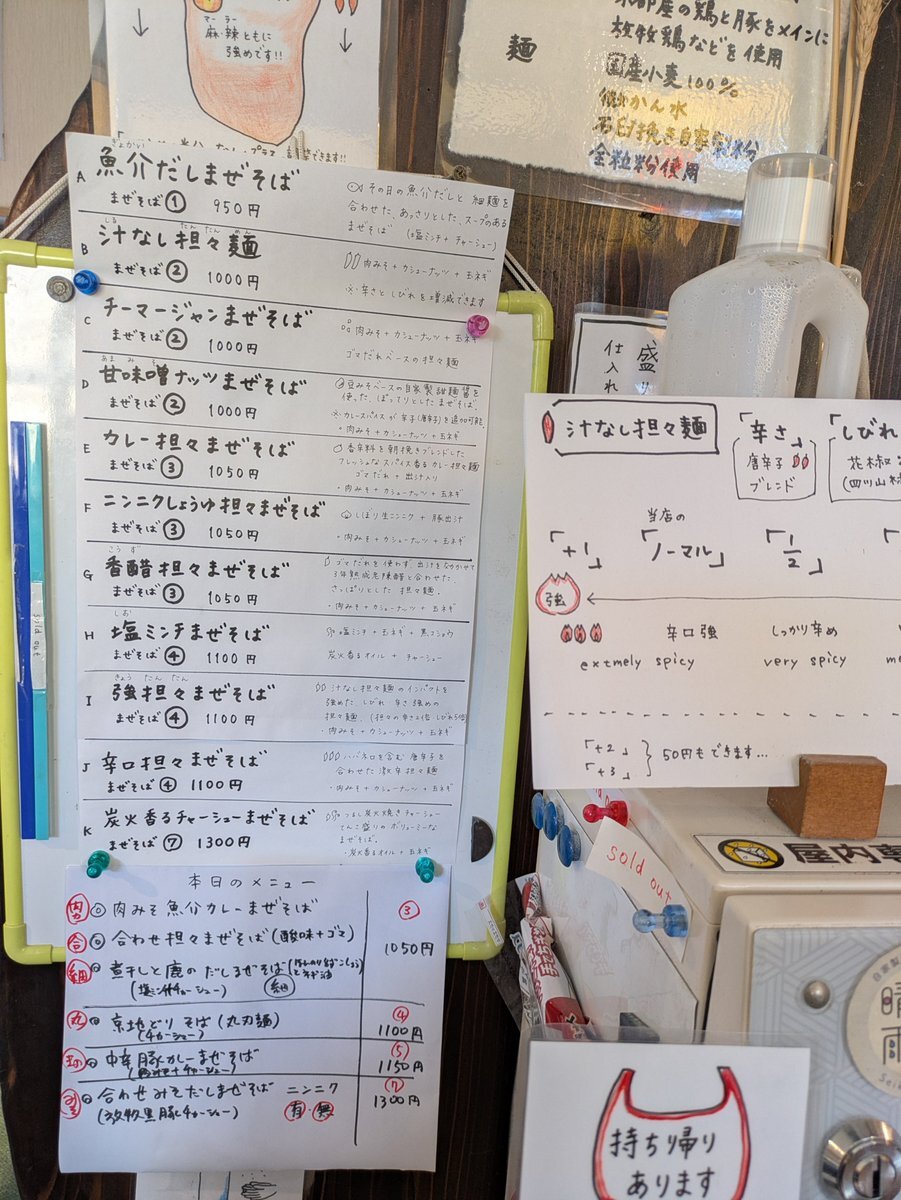 マーラー
麻・辣ともに
強めです!!
麺
鶏と豚をメインに
放牧鶏などを使用
国産小麦100%
かん水
石臼挽き自家製粉
全粒粉使用
A 魚介だしまぜそば
ぎょかい
まぜそば① 950円
その日の魚介だしと細麺を
合わせた、あっさりとした、スープのある
まぜそば (塩ミンチ+チャーシュー)
B 汁なし担々麺
しる たんたんめん
まぜそば② 1000円
肉みそ+カシューナッツ+玉ネギ
※辛さとしびれを増減できます
C チーマージャンまぜそば
まぜそば② 1000円
肉みそ+カシューナッツ+玉ネギ
ゴマだれベースの担々麺
D 甘味噌ナッツまぜそば
あまみそ
まぜそば② 1000円
豆みそベースの自家製甜麺醤を
使った、ぽってりとしたまぜそば。
※カレースパイスか辛子(唐辛子)を追加可能
・肉みそ+カシューナッツ+玉ネギ
E カレー担々まぜそば
まぜそば③ 1050円
香辛料を朝挽きブレンドした
フレッシュなスパイス香るカレー担々麺
ゴマだれ+出汁入り
・肉みそ+カシューナッツ+玉ネギ
F ニンニクしょうゆ担々まぜそば
まぜそば③ 1050円
しぼり生ニンニク+豚出汁
・肉みそ+カシューナッツ+玉ネギ
G 香醋担々まぜそば
こうず
まぜそば③ 1050円
ゴマだれを使わず、出汁をなかせて
3年熟成老陳醋と合わせた、
さっぱりとした担々麺。
・肉みそ+カシューナッツ+玉ネギ
H 塩ミンチまぜそば
しお
まぜそば④ 1100円
塩ミンチ+玉ネギ+黒コショウ
炭火香るオイル+チャーシュー
I 強担々まぜそば
きょうたんたん
まぜそば④ 1100円
汁なし担々麺のインパクトを
強めた、しびれ 辛さ強めの
担々麺。(担々の辛さ2倍 しびれ5倍)
・肉みそ+カシューナッツ+玉ネギ
J 辛口担々まぜそば
まぜそば④ 1100円
ハバネロを含む唐辛子を
合わせた激辛担々麺
・肉みそ+カシューナッツ+玉ネギ
K 炭火香るチャーシューまぜそば
まぜそば⑦ 1300円
つるし炭火焼きチャーシュー
てんこ盛りのボリューミーな
まぜそば。
・炭火香るオイル+玉ネギ
本日のメニュー
肉みそ魚介カレーまぜそば ③
合 合わせ担々まぜそば(酸味+ゴマ) 1050円
細 煮干しと鹿のだしまぜそば
細
丸 京地どりそば(丸刃麺) ④
(チャーシュー) 1100円
中辛豚カレーまぜそば ⑤
(肉みそ+チャーシュー) 1150円
合わせみそだしまぜそば ニンニク ⑦
(放牧黒豚チャーシュー) 有・無 1300円
盛
仕入れ
汁なし担々麺
「辛さ」
唐辛子
ブレンド
「しびれ
花椒
(四川山椒
「+1」
当店の
「ノーマル」
「1/2」
強
辛口強
しっかり辛め
extmely spicy
very spicy
「+2」
「+3」
50円もできます…
sold out
sold out
屋内専
自家製
晴
雨
持ち帰り
あります